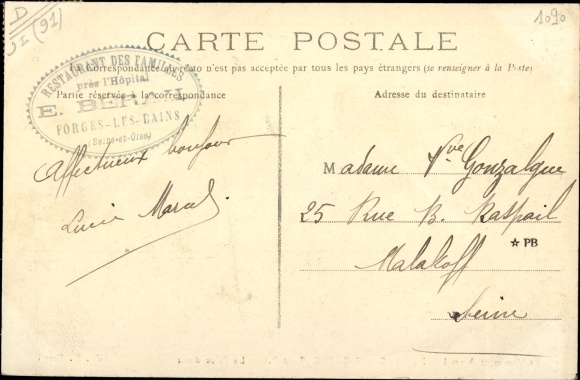 D
91 (91)
1090
CARTE POSTALE
La Correspondance au recto n'est pas acceptée par tous les pays étrangers (se renseigner à la Poste)
Partie réservée à la correspondance
Adresse du destinataire
RESTAURANT DES FAMILLES
près l'Hôpital
E. BERAL
FORGES-LES-BAINS
(Seine-et-Oise)
Affectueux bonjour
Lucie Marcel
Madame Vve Gonzalgue
25 Rue B. Raspail
☆ PB
Malakoff
Seine